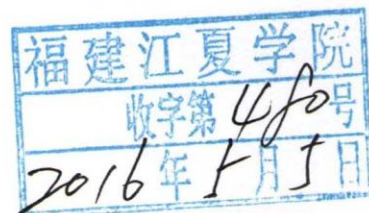 福建江夏学院
收字第480号
2016年5月5日